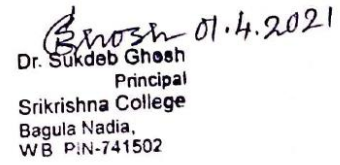 Ghosh 01.4.2021
Dr. Sukdeb Ghosh
Principal
Srikrishna College
Bagula Nadia,
WB PIN-741502